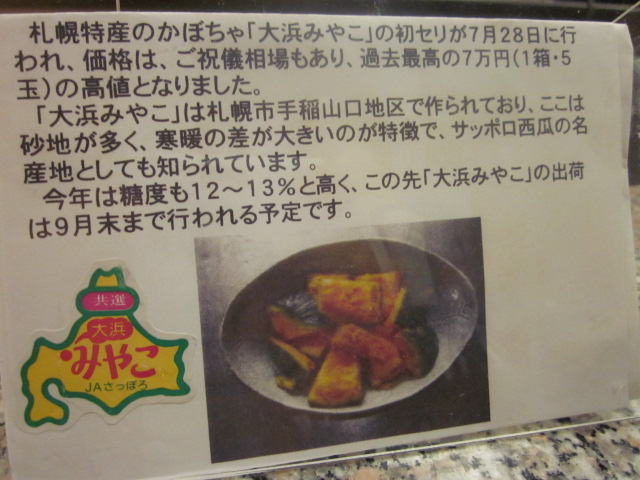 札幌特産のかぼちゃ「大浜みやこ」の初セリが7月28日に行
われ、価格は、ご祝儀相場もあり、過去最高の7万円(1箱・5
玉)の高値となりました。
「大浜みやこ」は札幌市手稲山口地区で作られており、ここは
砂地が多く、寒暖の差が大きいのが特徴で、サッポロ西瓜の名
産地としても知られています。
今年は糖度も12~13%と高く、この先「大浜みやこ」の出荷
は9月末まで行われる予定です。
共選
大浜
みやこ
JAさっぽろ